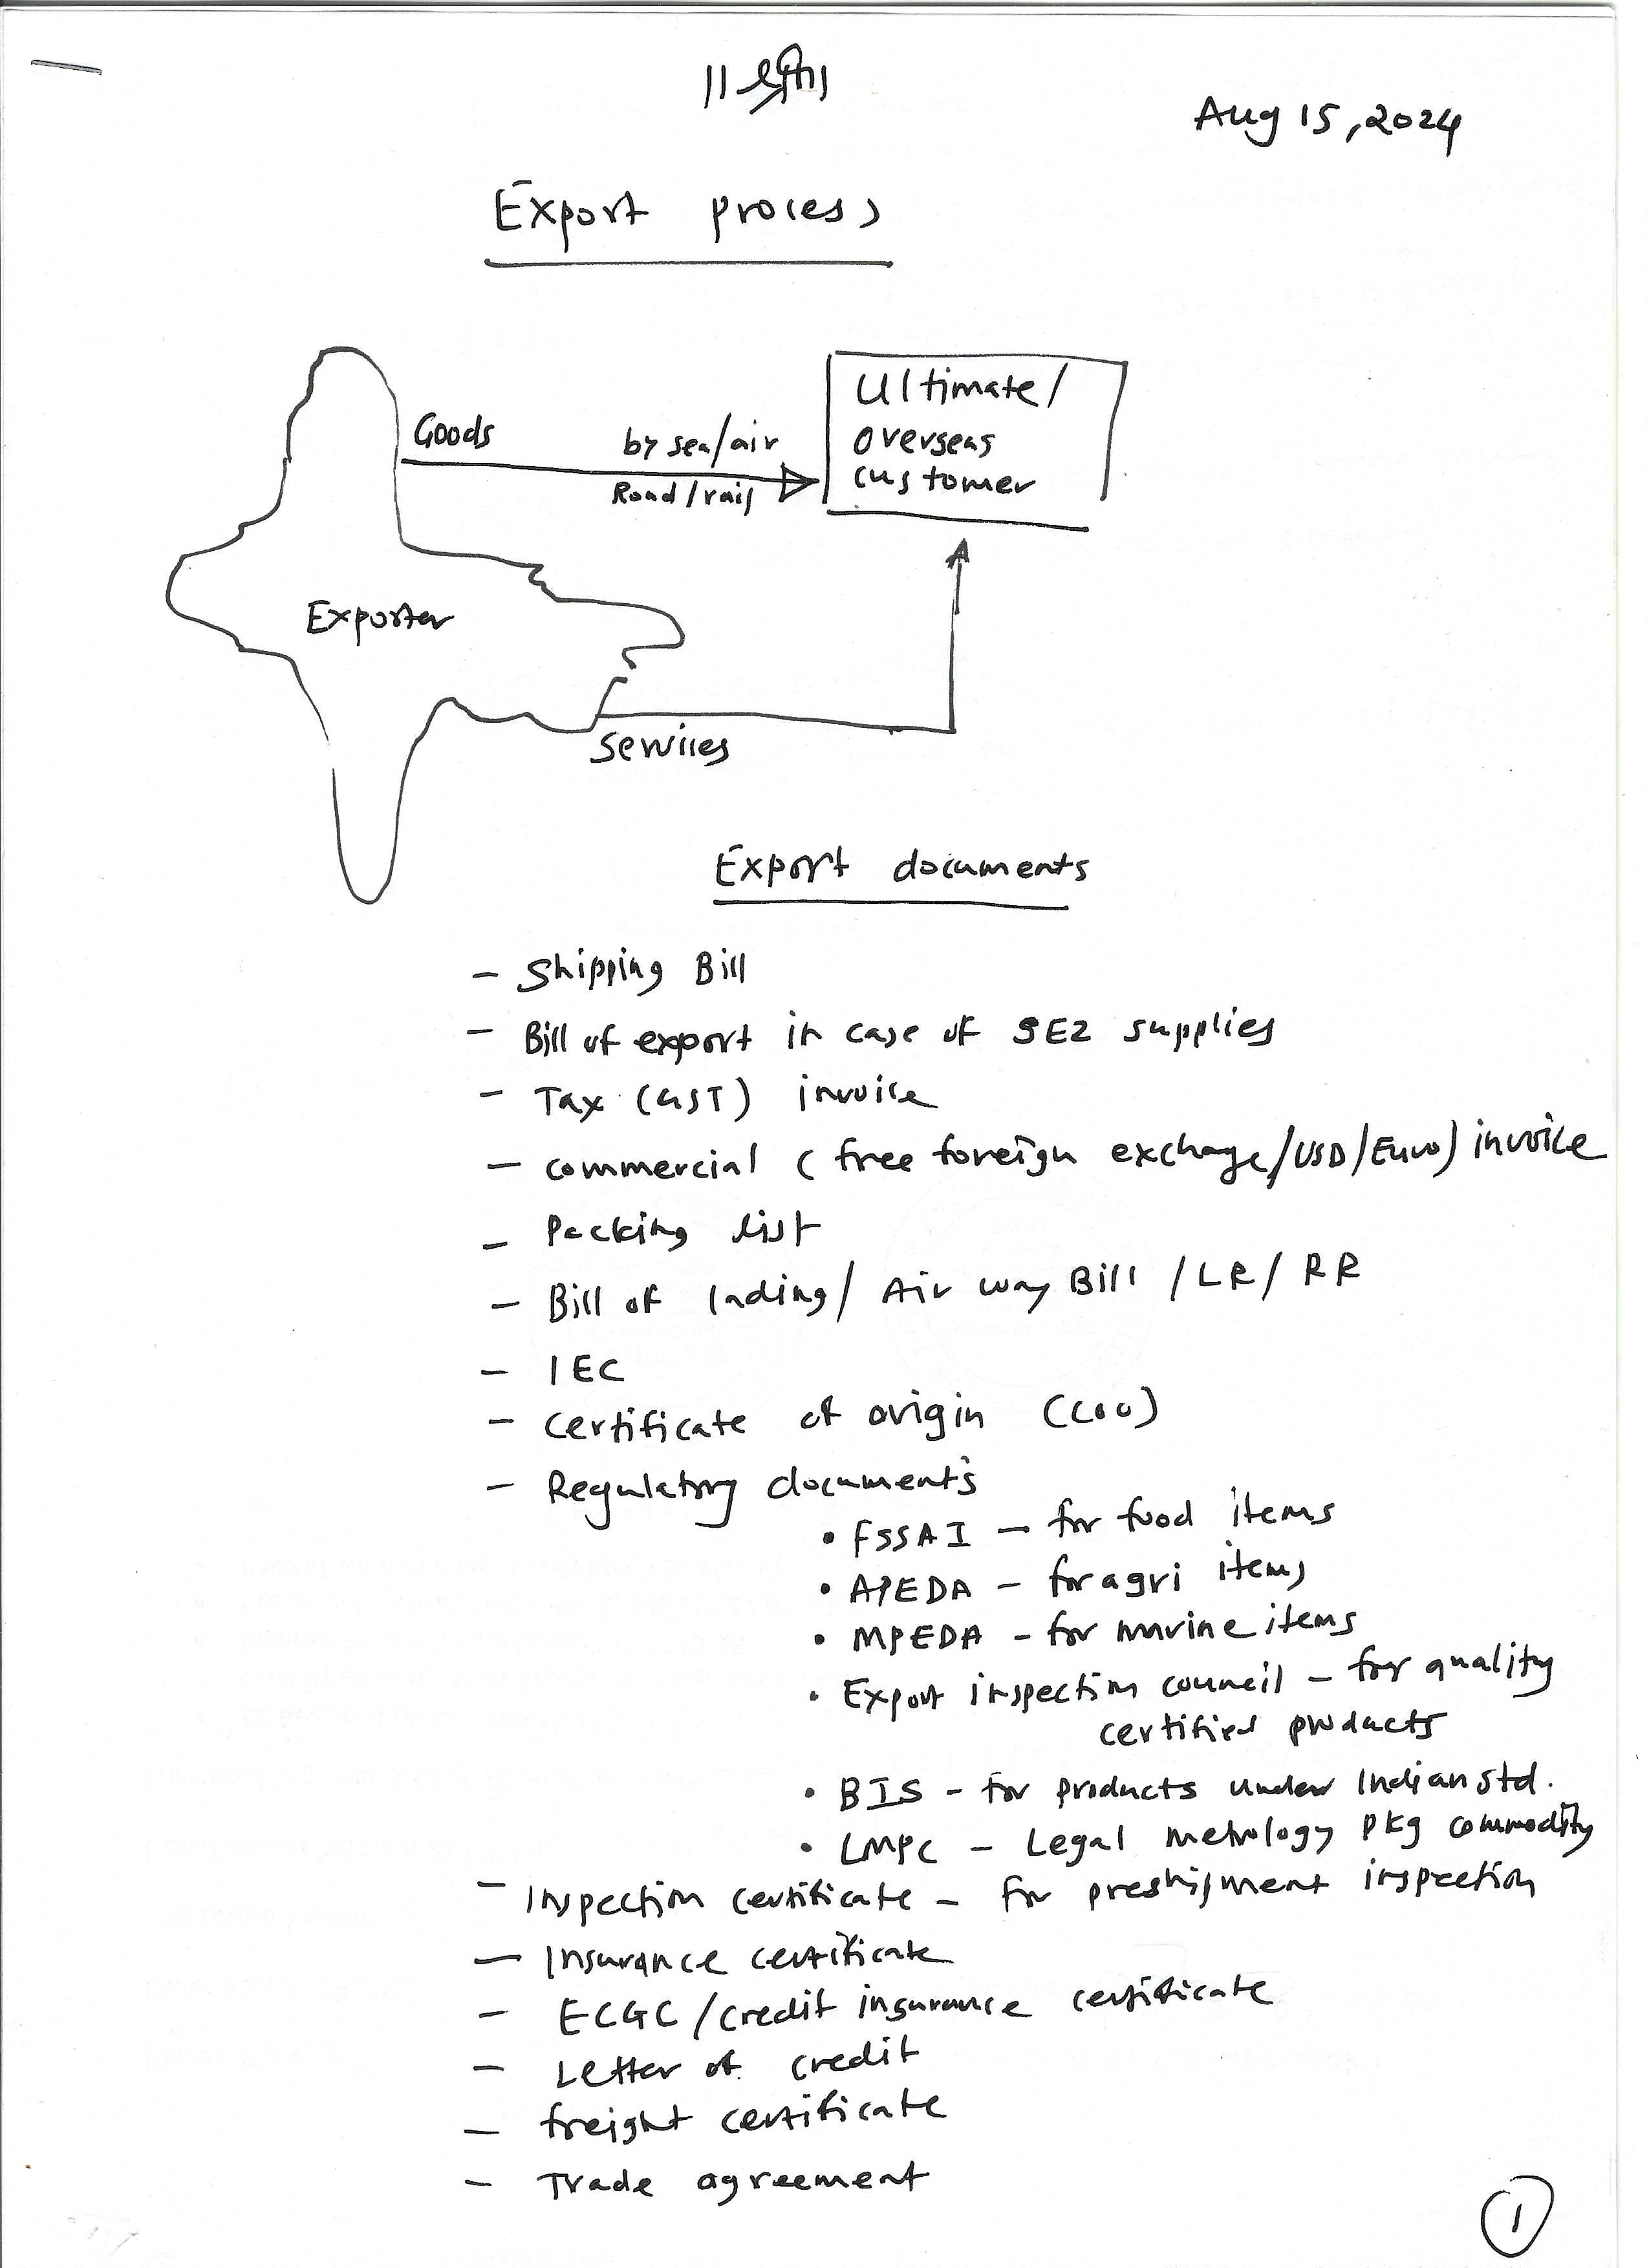 ॥ श्री ॥
Aug 15, 2024
Export process
Goods
by sea/air
Road/rail
Ultimate/
overseas
customer
Exporter
Services
Export documents
- Shipping Bill
- Bill of export in case of SEZ supplies
- Tax (GST) invoice
- commercial (free foreign exchange/USD/Euro) invoice
- Packing list
- Bill of lading/ Air way Bill /LR/ RR
- IEC
- Certificate of origin (COO)
- Regulatory documents
• FSSAI - for food items
• APEDA - for agri items
• MPEDA - for marine items
• Export inspection council - for quality
certified products
• BIS - for products under Indian std.
• LMPC - Legal metrology pkg commodity
- Inspection certificate - for preshipment inspection
- Insurance certificate
- ECGC /credit insurance certificate
- Letter of credit
- freight certificate
- Trade agreement
1